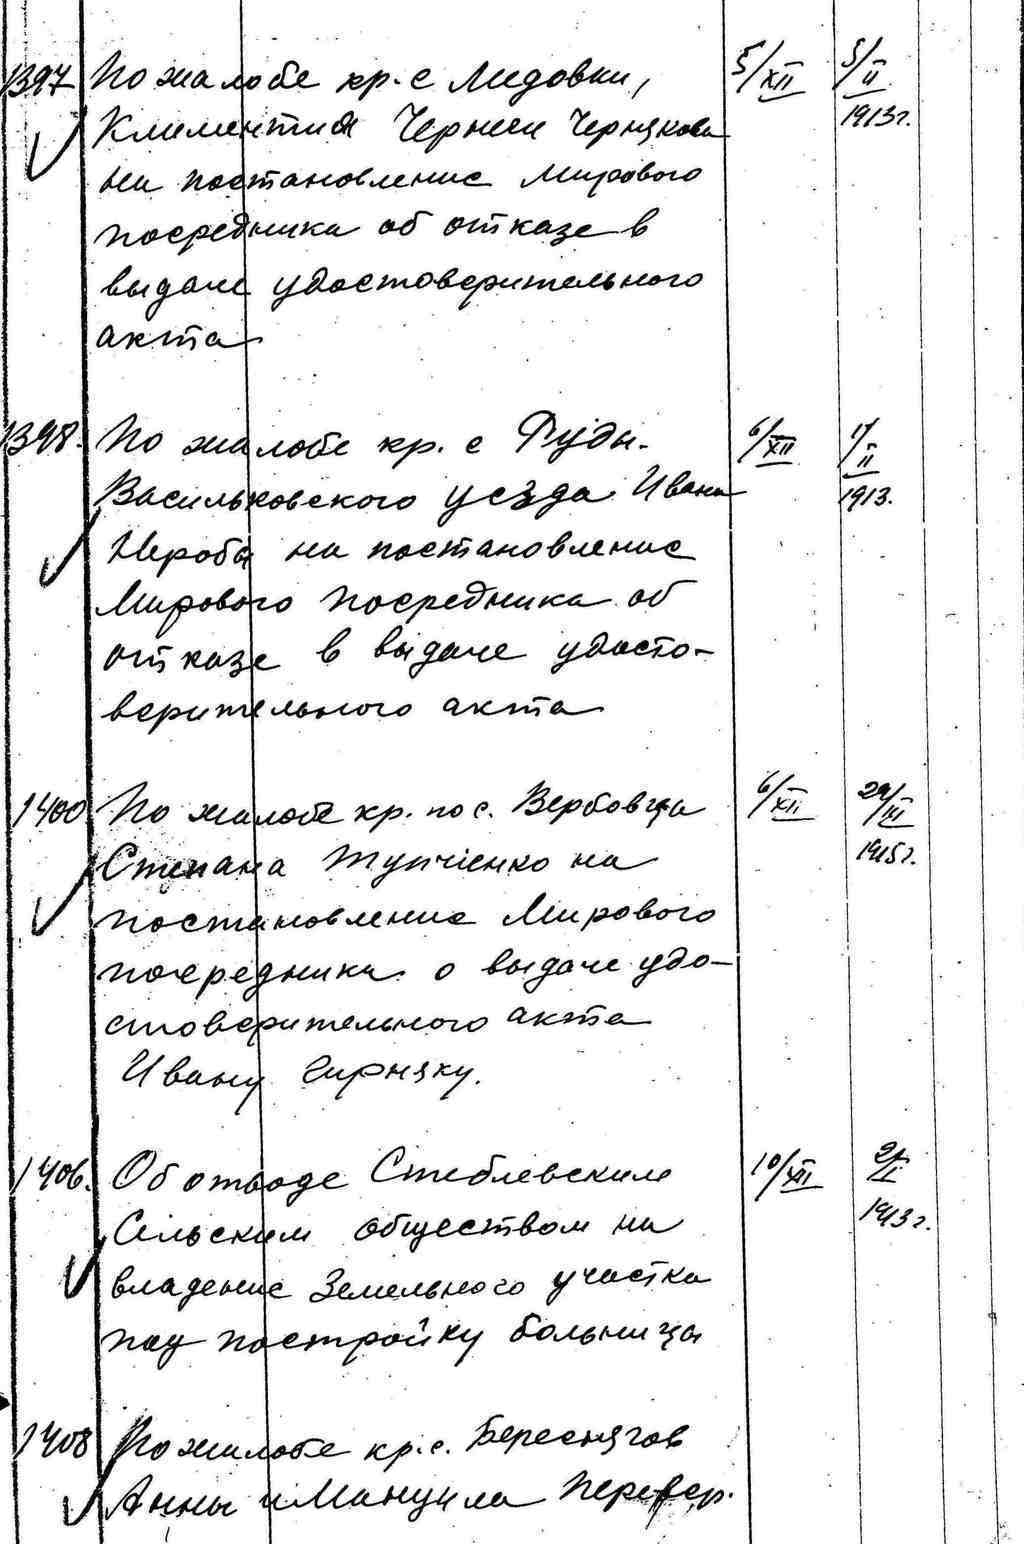 1397 По жалобе кр. с Лидовки, 5/XII 5/II
Климентия Чернеи Чернякова 1913г.
на постановление Мирового
посредника об отказе в
выдаче удостоверительного
акта
1398. По жалобе кр. с Руды. 6/XII 17/II
Васильковского уезда Ивана 1913.
Нероба на постановление
Мирового посредника об
отказе в выдаче удосто-
верительного акта
1400 По жалобе кр. пос. Вербовца 6/XII 29/III
Степана Тупчиенко на 1915г.
постановление Мирового
посредника о выдаче удо-
стоверительного акта
Ивану Гирняку.
1406. Об отводе Стеблевским 10/XII
Сельским обществом на 1913г.
владение Земельного участка
под постройку больницы
1408 По жалобе кр. с. Береснягов
Анны и Мануила Перевер.